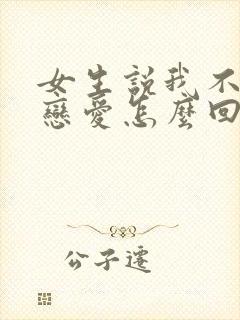 女生說我不
戀愛怎麼回
公子遷